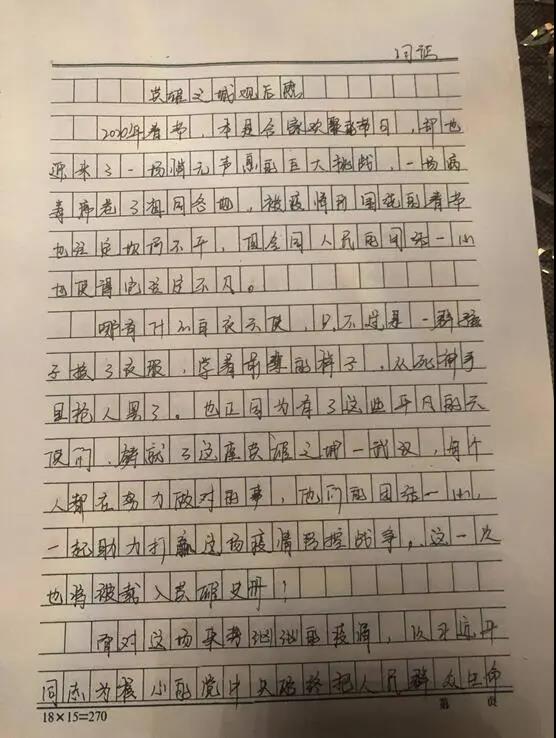 闫证
英雄之城观后感
2020年春节，本是合家欢聚的节日，却也
迎来了一场悄无声息的巨大挑战，一场病
毒席卷了祖国各地，被疫情所围绕的春节
也注定坎坷不平，但全国人民的团结一心
也使得它注定不凡。
哪有什么白衣天使，只不过是一群孩
子换了衣服，学着前辈的样子，从死神手
里抢人罢了。也正因为有了这些平凡的天
使们，铸就了这座英雄之城—武汉，每个
人都在努力做对的事，他们的团结一心，
一起助力打赢这场疫情防控战争，这一次
也将被载入英雄史册！
面对这场来势汹汹的疫情，以习近平
同志为核心的党中央始终把人民群众生命
18×15=270
第 页